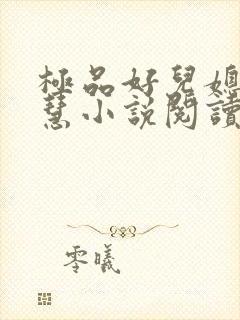 極品好兒媳
慧小說閱讀
零曦